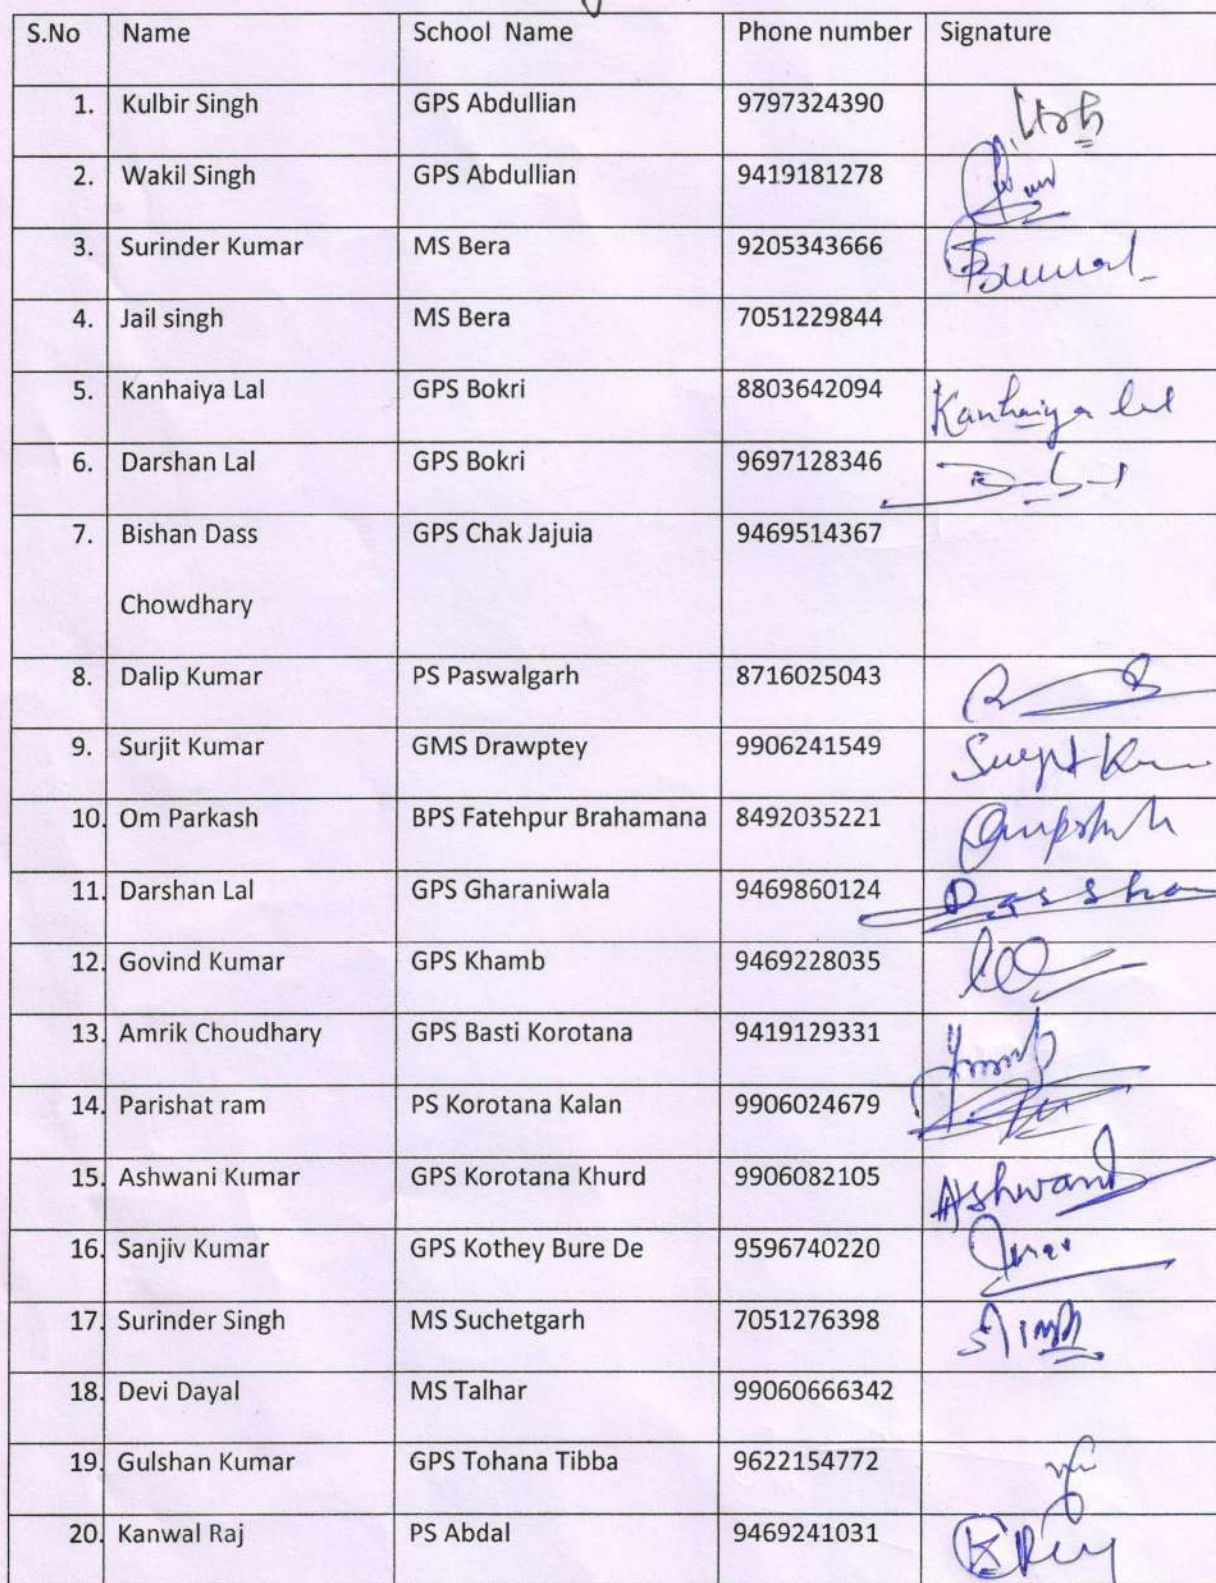 S.No Name School Name Phone number Signature
1. Kulbir Singh GPS Abdullian 9797324390
2. Wakil Singh GPS Abdullian 9419181278
3. Surinder Kumar MS Bera 9205343666
4. Jail singh MS Bera 7051229844
5. Kanhaiya Lal GPS Bokri 8803642094 Kanhaiya lal
6. Darshan Lal GPS Bokri 9697128346
7. Bishan Dass GPS Chak Jajuia 9469514367
Chowdhary
8. Dalip Kumar PS Paswalgarh 8716025043
9. Surjit Kumar GMS Drawptey 9906241549
10. Om Parkash BPS Fatehpur Brahamana 8492035221
11. Darshan Lal GPS Gharaniwala 9469860124
12. Govind Kumar GPS Khamb 9469228035
13. Amrik Choudhary GPS Basti Korotana 9419129331
14. Parishat ram PS Korotana Kalan 9906024679
15. Ashwani Kumar GPS Korotana Khurd 9906082105
16. Sanjiv Kumar GPS Kothey Bure De 9596740220
17. Surinder Singh MS Suchetgarh 7051276398
18. Devi Dayal MS Talhar 99060666342
19. Gulshan Kumar GPS Tohana Tibba 9622154772
20. Kanwal Raj PS Abdal 9469241031